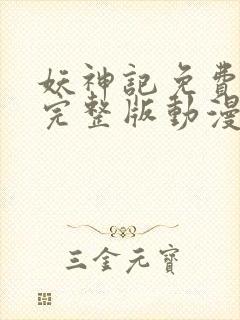 妖神記免費
完整版動漫
三金元寶